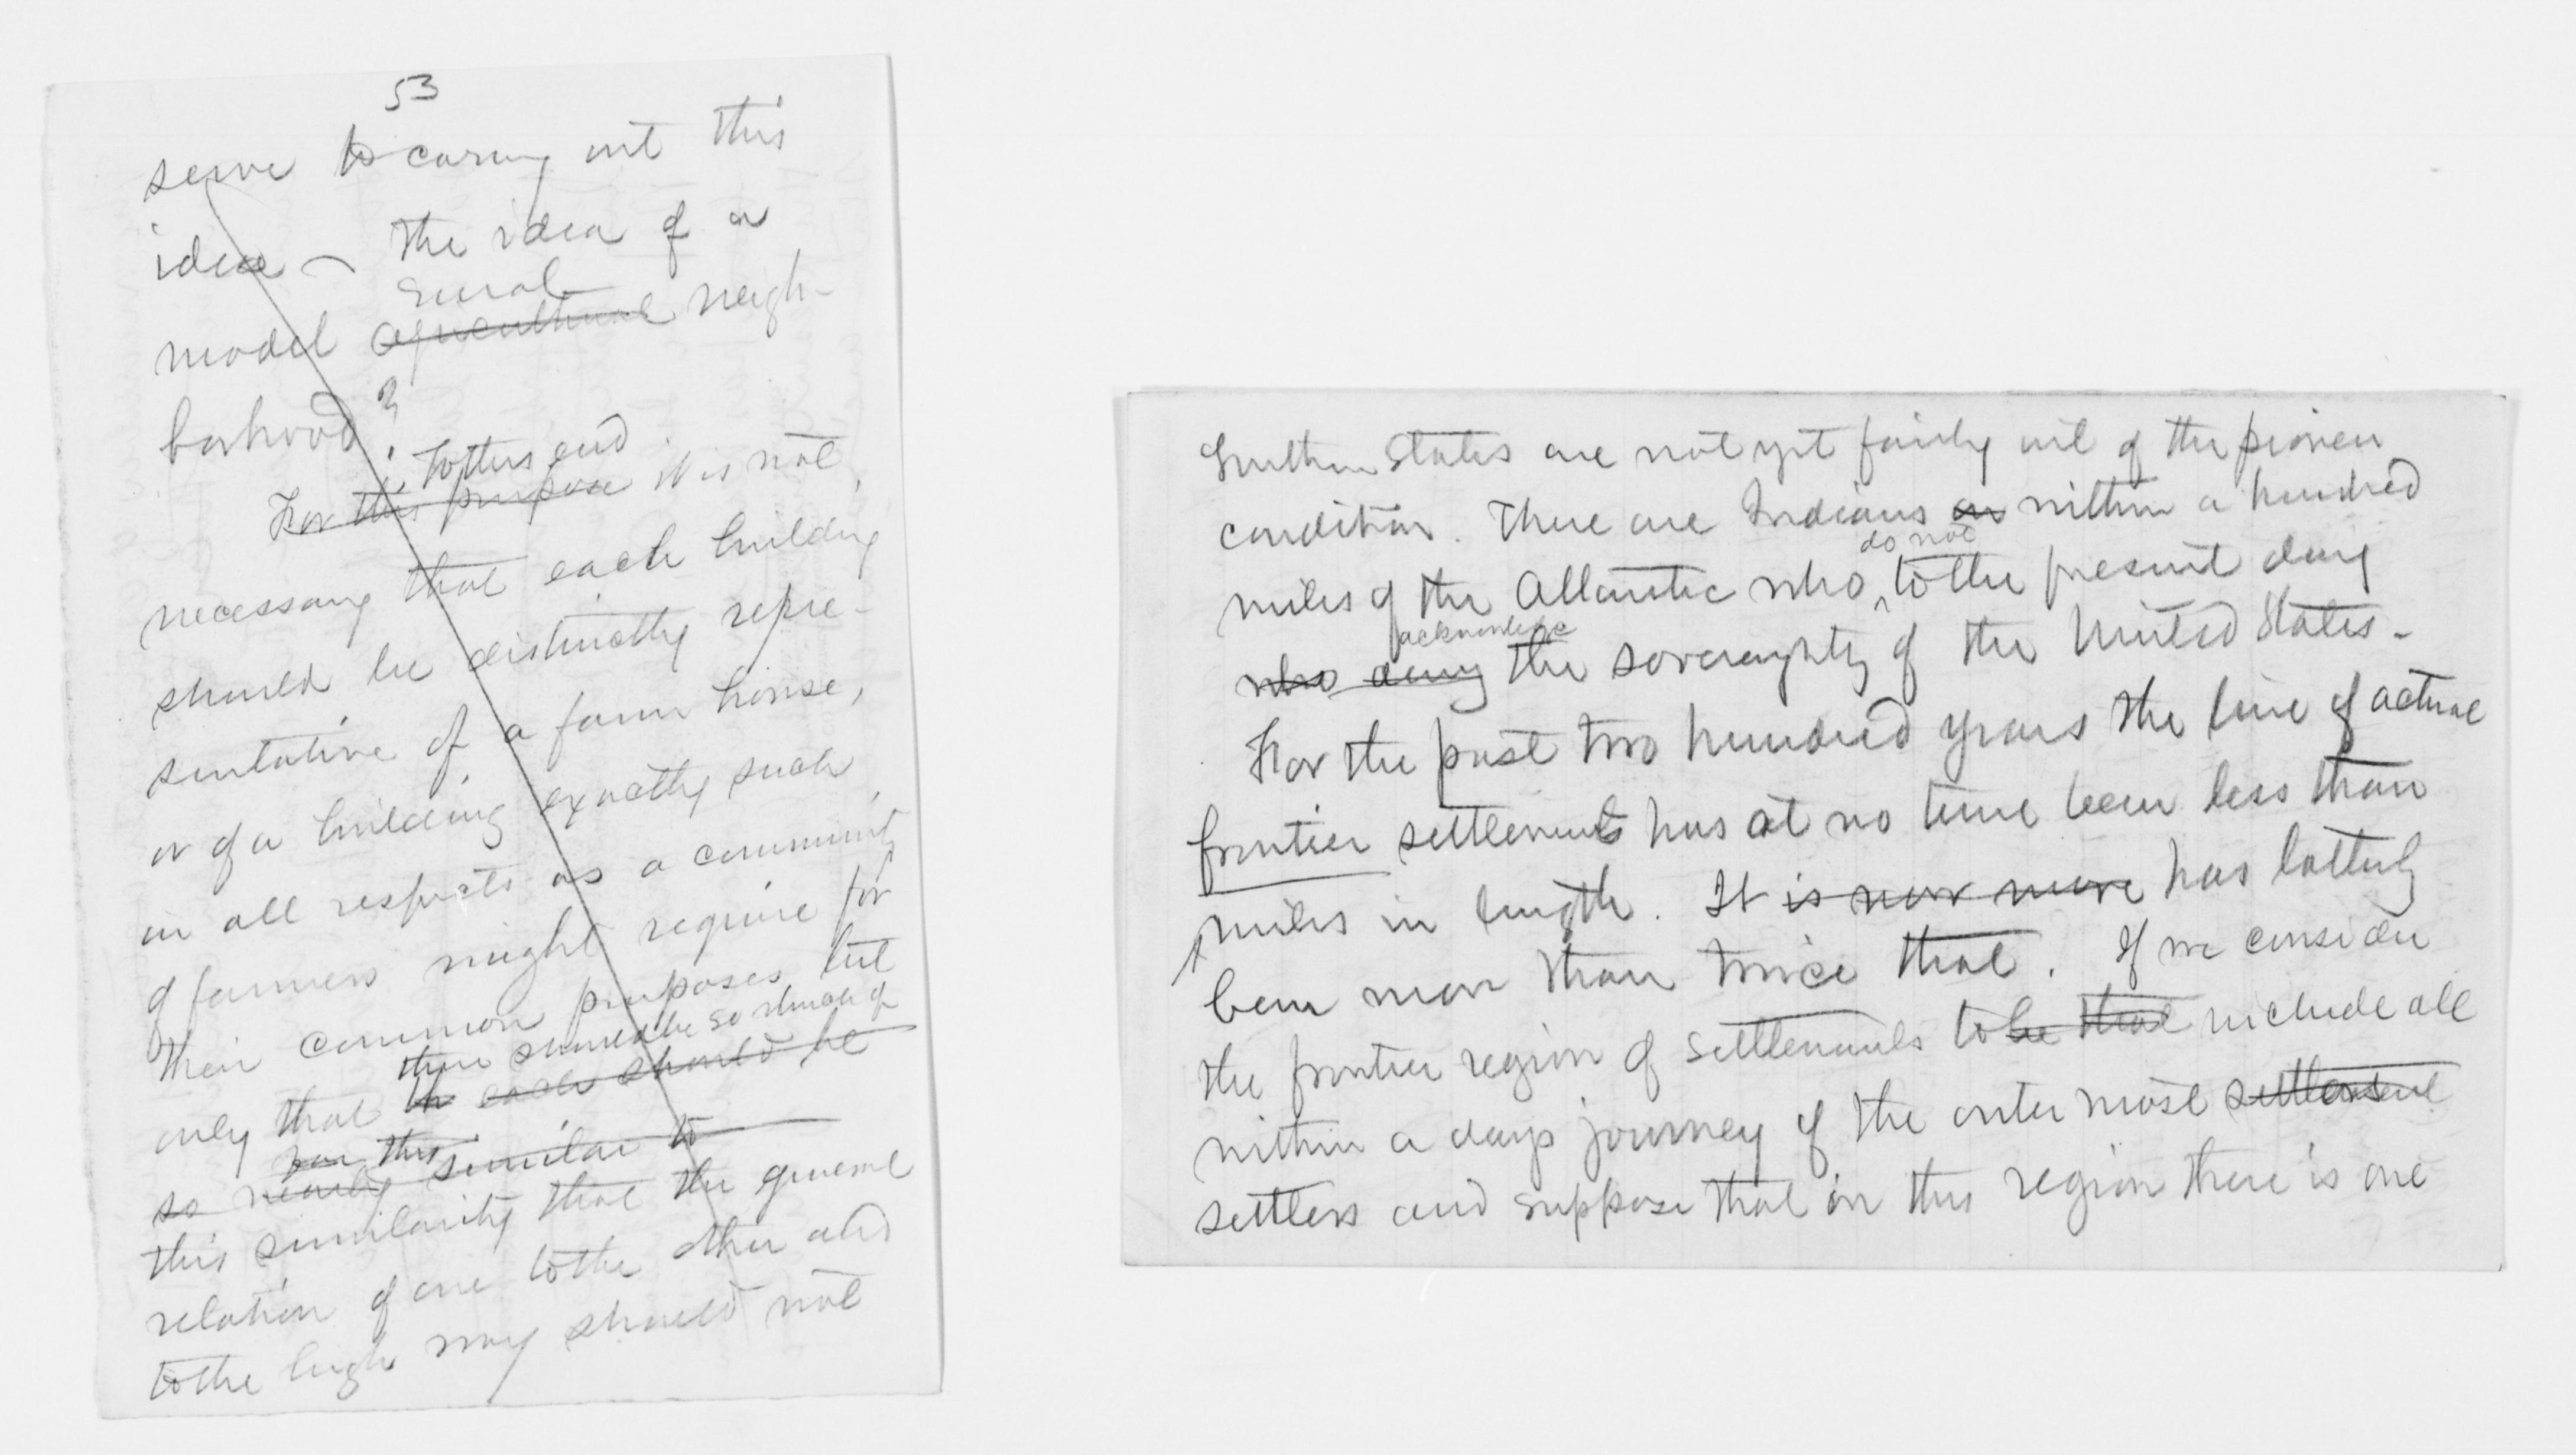 53
serve to caring out this
idea - The idea of a
rural
model agricultural neigh-
borhood?
To this end
For this purpose it is not
necessary that each building
should be distinctly repre-
sentative of a farm house,
or of a building exactly such
in all respects as a community
of farmers might require for
their common purposes but
there should be so much of
only that th each should be
so nearly similar to
this similarity that the general
relation of one to the other and
to the high way should not
Southern States are not yet fairly out of the pioneer
condition. There are Indians on within a hundred
do not
miles of the Atlantic who to the present day
acknowledge
who deny the sovereignty of the United States -
For the past two hundred years the line of actual
frontier settlements has at no time been less than
miles in length. It is now more has latterly
been more than twice that. If we consider
the frontier region of settlements to be that include all
within a days journey of the outer most settlement
settlers and suppose that in this region there is one